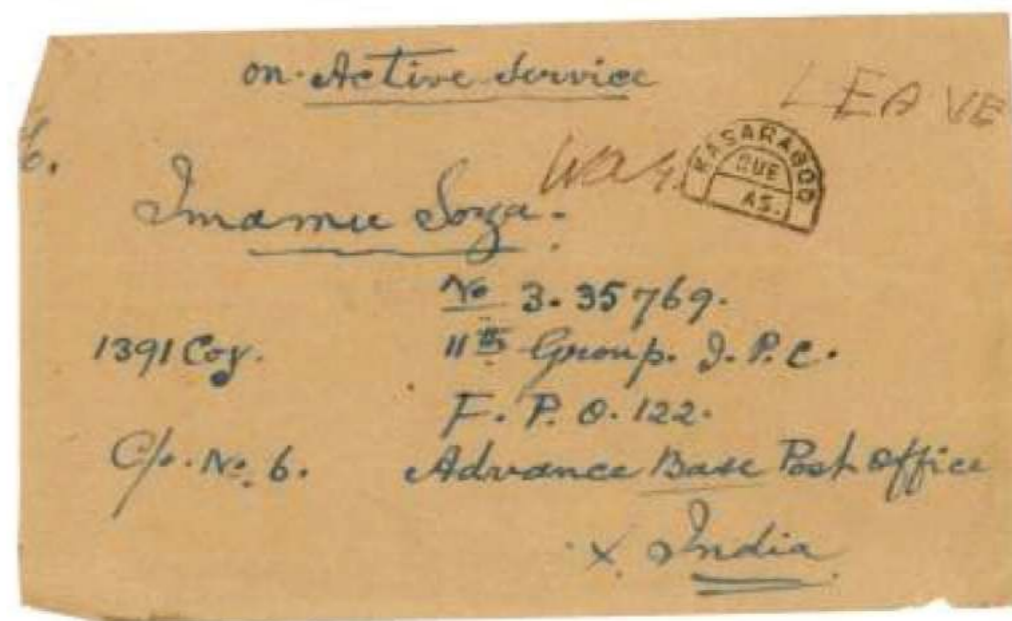 on Active Service
LEAVE
To.
KASARAGOD
DUE
AS.
Imamu Soza.
No 3. 35769.
1391 Coy.
11th Group. I. P. C.
F. P. O. 122.
C/o. No. 6.
Advance Base Post Office
X. India